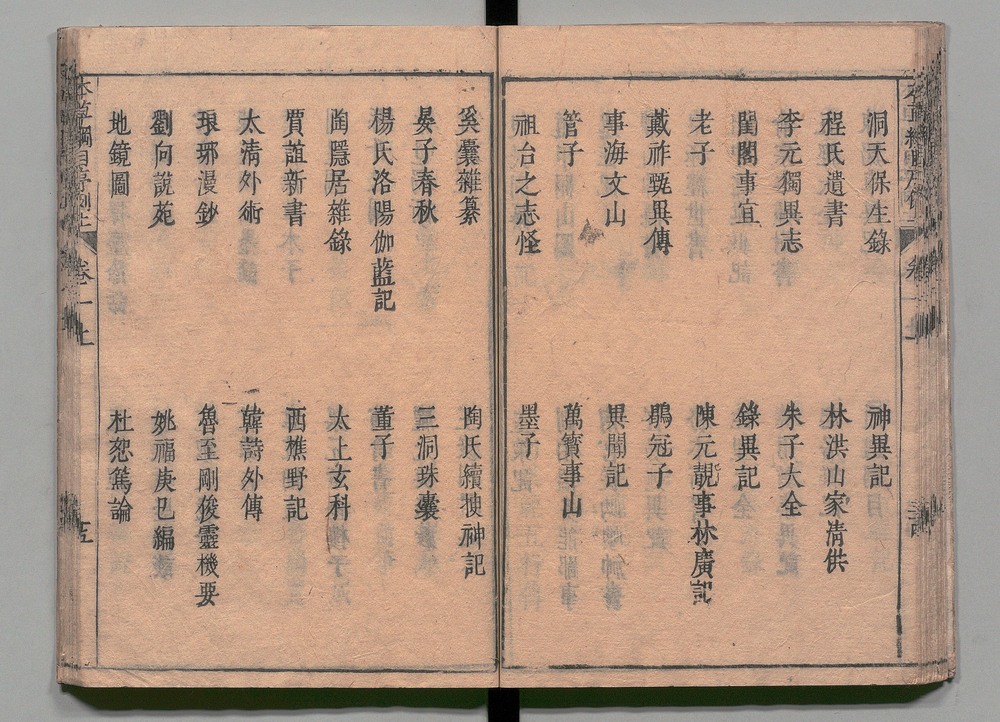 洞天保生錄 神異記
程氏遺書 林洪山家清供
李元獨異志 朱子大全
閨閣事宜 錄異記
老子 陳元靚事林廣記
戴祚甄異傳 鶡冠子
事海文山 異聞記
管子 萬寶事山
祖台之志怪 墨子
奚囊雜纂 陶氏續搜神記
晏子春秋 三洞珠囊
楊氏洛陽伽藍記 董子
陶隱居雜錄 太上玄科
賈誼新書 西樵野記
太清外術 韓詩外傳
琅琊漫鈔 魯至剛俊靈機要
劉向說苑 姚福庚巳編
地鏡圖 杜恕篤論
本草綱目序例上 卷一上 十五